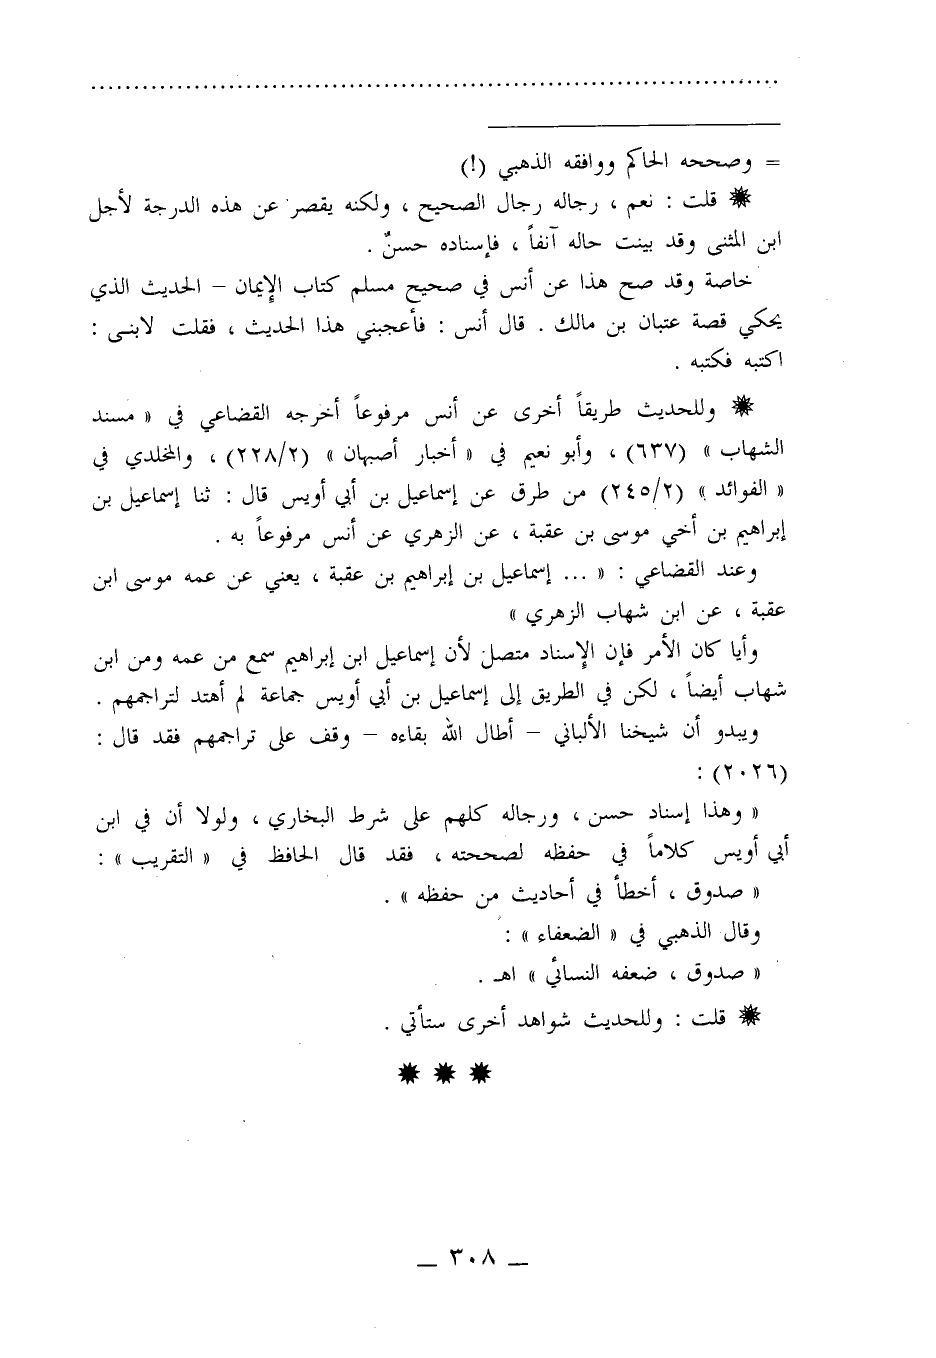 ................................................................................
= وصححه الحاكم ووافقه الذهبي (!)
✹ قلت : نعم ، رجاله رجال الصحيح ، ولكنه يقصر عن هذه الدرجة لأجل
ابن المثنى وقد بينت حاله آنفاً ، فإسناده حسنٌ .
خاصة وقد صح هذا عن أنس في صحيح مسلم كتاب الإيمان – الحديث الذي
يحكي قصة عتبان بن مالك . قال أنس : فأعجبني هذا الحديث ، فقلت لابنى :
اكتبه فكتبه .
✹ وللحديث طريقاً أخرى عن أنس مرفوعاً أخرجه القضاعي في « مسند
الشهاب » (٦٣٧) ، وأبو نعيم في « أخبار أصبهان » (٢٢٨/٢) ، والمخلدي في
« الفوائد » (٢٤٥/٢) من طرق عن إسماعيل بن أبي أويس قال : ثنا إسماعيل بن
إبراهيم بن أخي موسى بن عقبة ، عن الزهري عن أنس مرفوعاً به .
وعند القضاعي : « ... إسماعيل بن إبراهيم بن عقبة ، يعني عن عمه موسى ابن
عقبة ، عن ابن شهاب الزهري »
وأيا كان الأمر فإن الإسناد متصل لأن إسماعيل ابن إبراهيم سمع من عمه ومن ابن
شهاب أيضاً ، لكن في الطريق إلى إسماعيل بن أبي أويس جماعة لم أهتد لتراجمهم .
ويبدو أن شيخنا الألباني – أطال الله بقاءه – وقف على تراجمهم فقد قال :
(٢٠٢٦) :
« وهذا إسناد حسن ، ورجاله كلهم على شرط البخاري ، ولولا أن في ابن
أبي أويس كلاماً في حفظه لصححته ، فقد قال الحافظ في « التقريب » :
« صدوق ، أخطأ في أحاديث من حفظه » .
وقال الذهبي في « الضعفاء » :
« صدوق ، ضعفه النسائي » اهـ .
✹ قلت : وللحديث شواهد أخرى ستأتي .
✹ ✹ ✹
ــ ٣٠٨ ــ